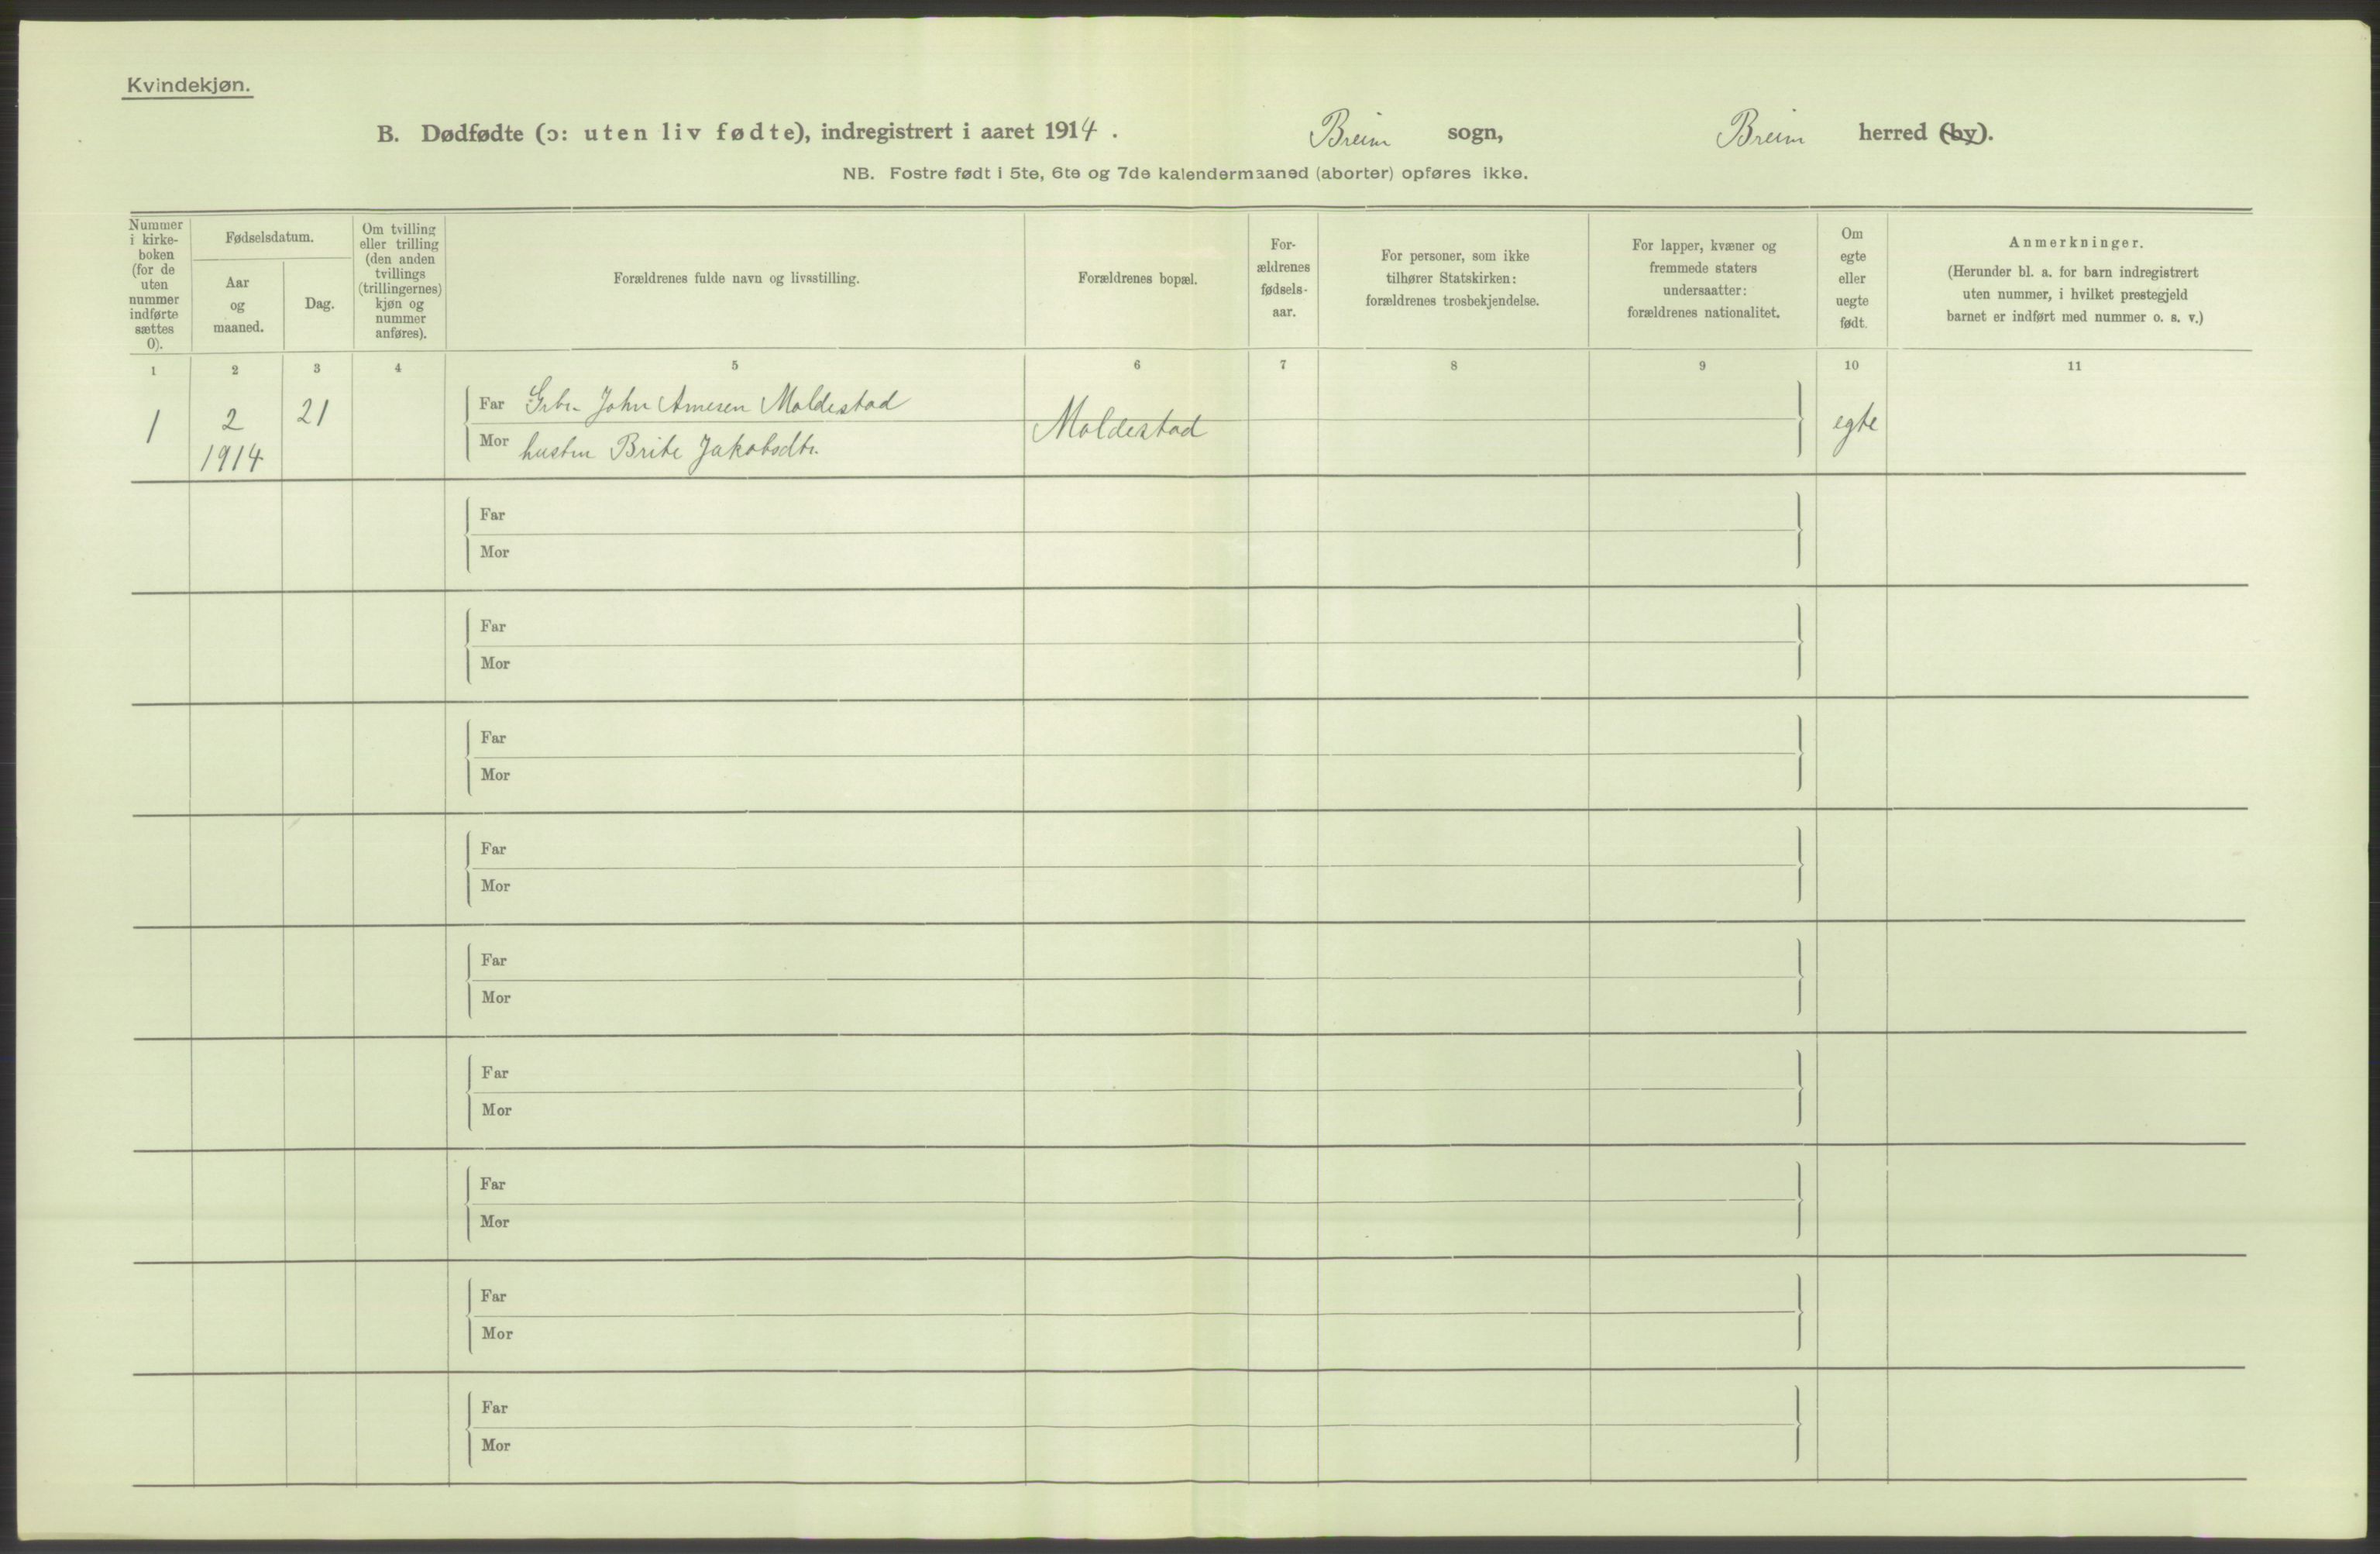 Kvindekjøn.
B. Dødfødte (ɔ: uten liv fødte), indregistrert i aaret 1914. Breim sogn, Breim herred (by).
NB. Fostre født i 5te, 6te og 7de kalendermaaned (aborter) opføres ikke.
Nummer i kirke- boken (for de uten nummer indførte sættes 0).
Fødselsdatum.
Aar og maaned.
Dag.
Om tvilling eller trilling (den anden tvillings (trillingernes) kjøn og nummer anføres).
Forældrenes fulde navn og livsstilling.
Forældrenes bopæl.
For- ældrenes fødsels- aar.
For personer, som ikke tilhører Statskirken: forældrenes trosbekjendelse.
For lapper, kvæner og fremmede staters undersaatter: forældrenes nationalitet.
Om egte eller uegte født.
Anmerkninger.
(Herunder bl. a. for barn indregistrert uten nummer, i hvilket prestegjeld barnet er indført med nummer o. s. v.)
1 2 3 4 5 6 7 8 9 10 11
1 2 21 Far Grbr. John Arnesen Moldestad Moldestad egte
1914 Mor hustru Brite Jakobsdtr.
Far
Mor
Far
Mor
Far
Mor
Far
Mor
Far
Mor
Far
Mor
Far
Mor
Far
Mor
Far
Mor